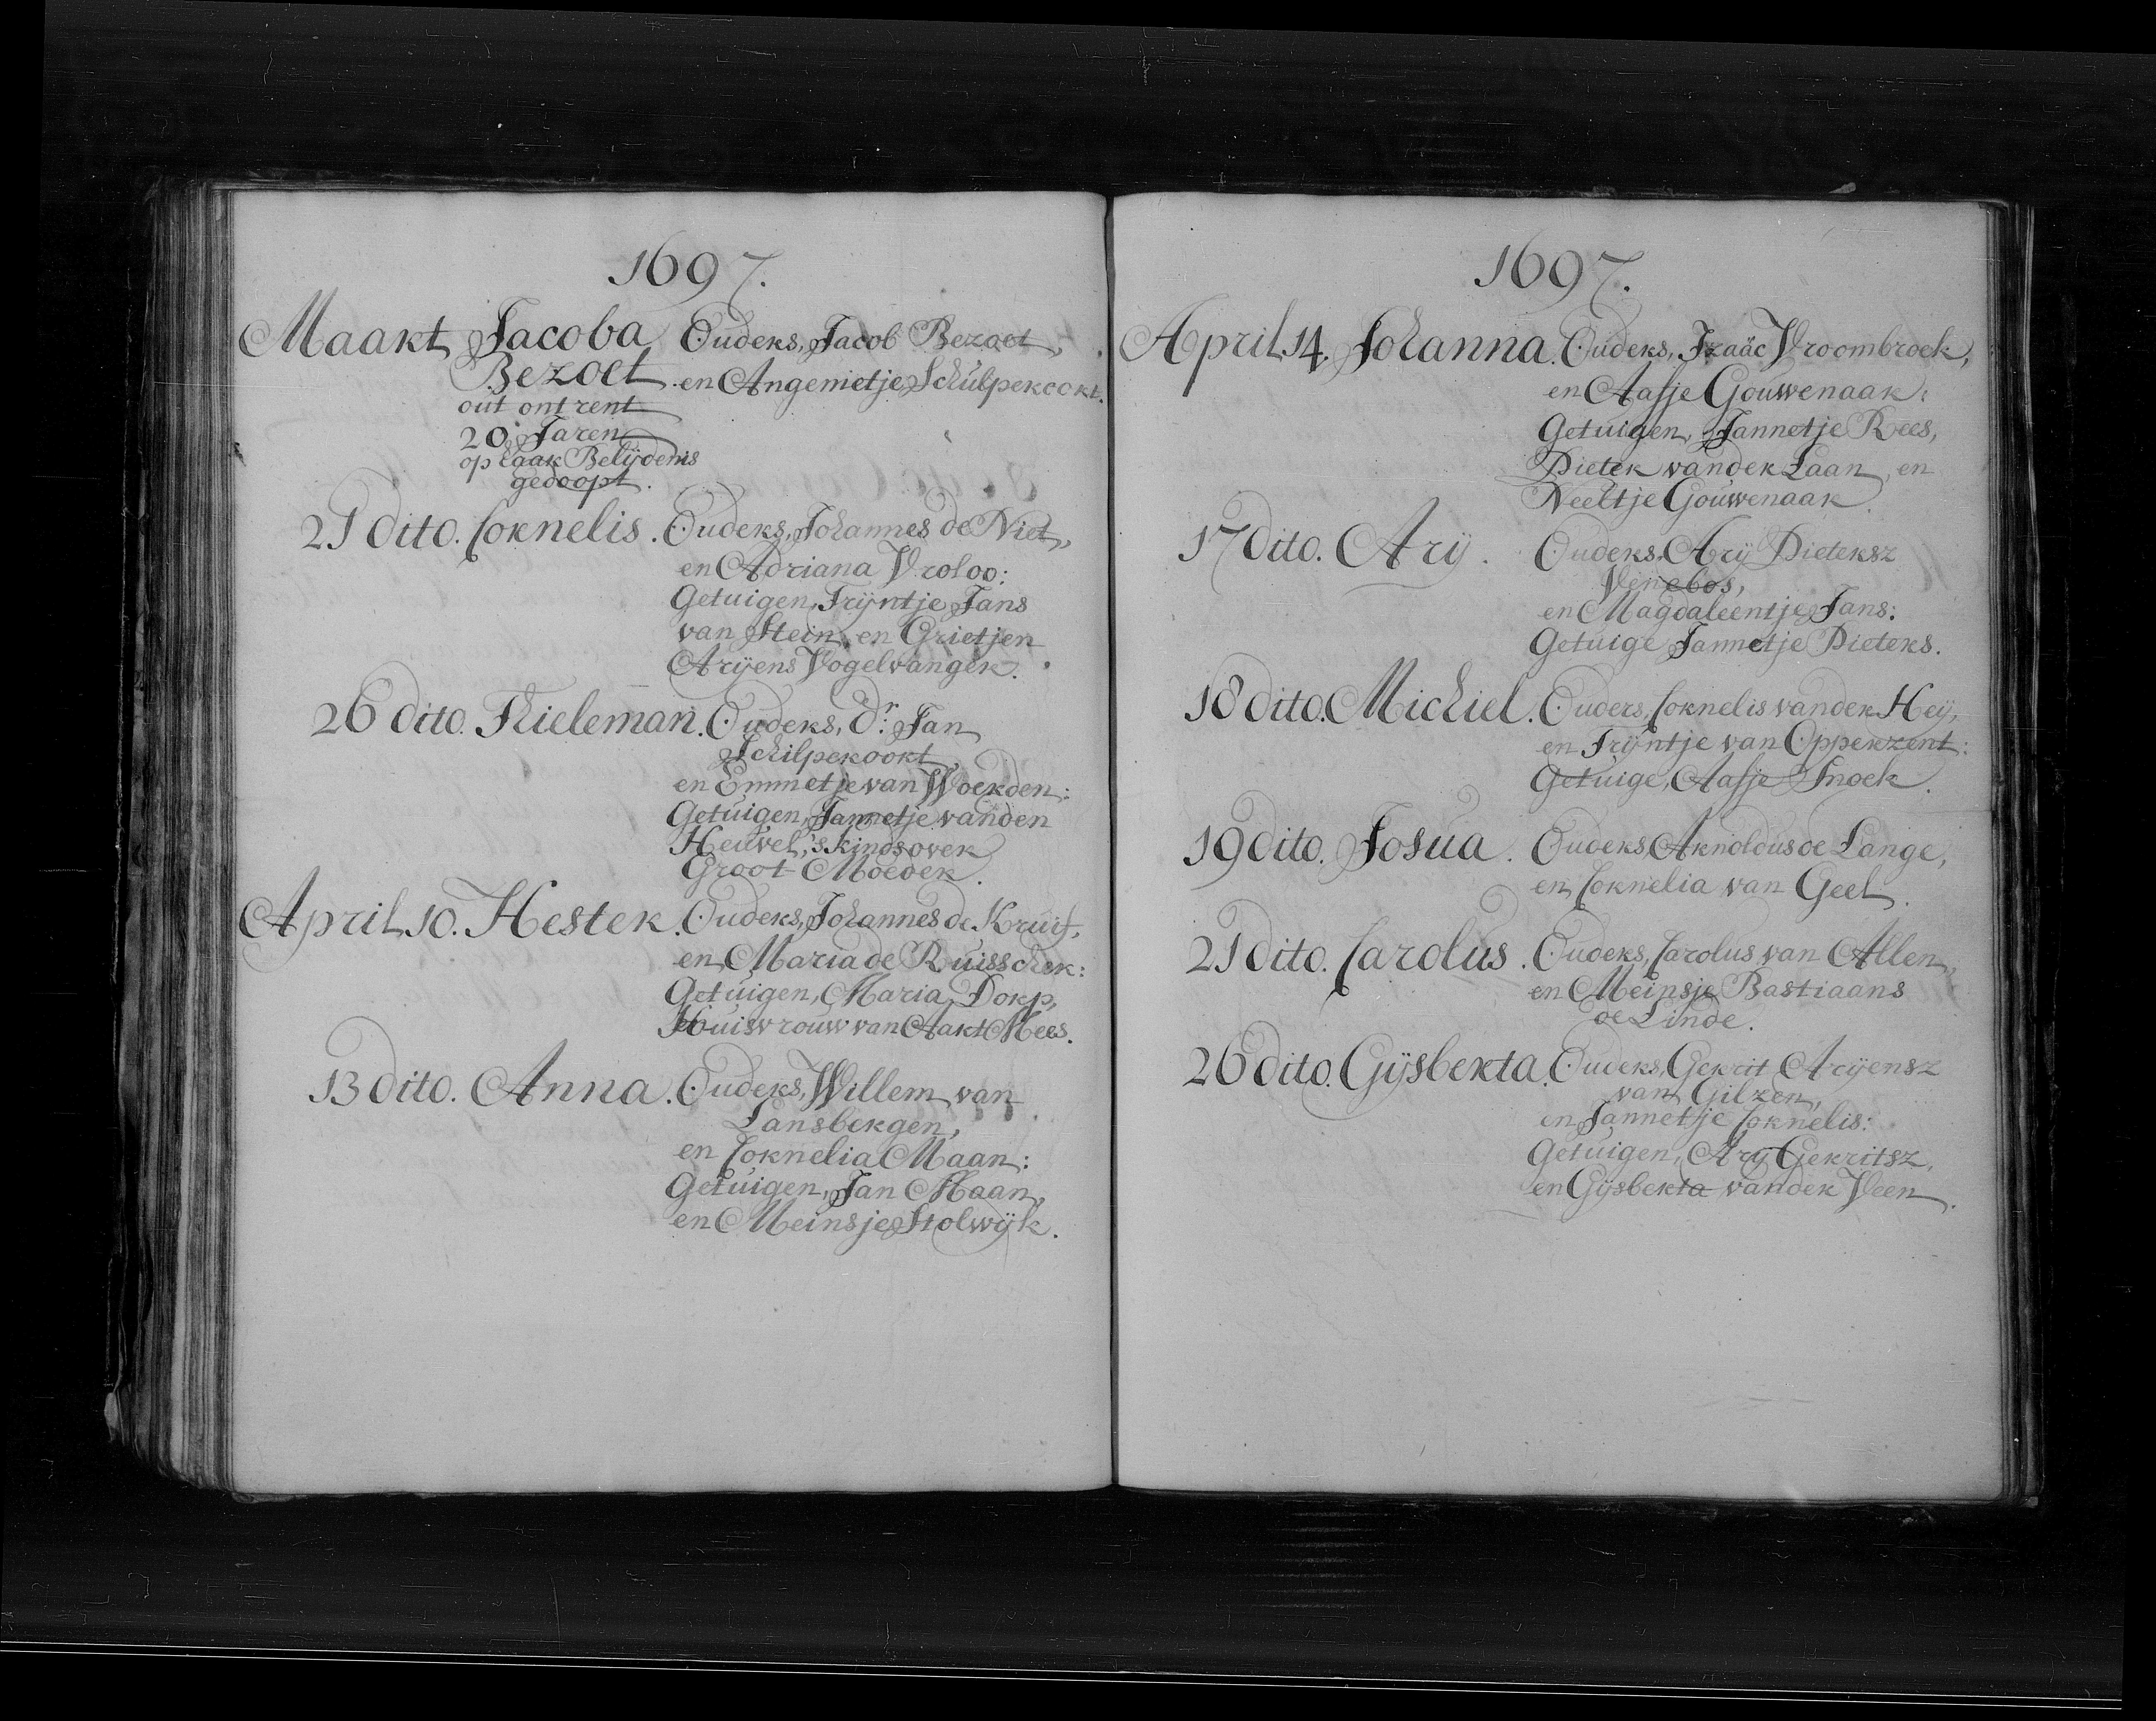 1697.
Maart Jacoba Ouders, Jacob Bezoet,
Bezoet. en Angenietje Schulperoort.
out ontrent
20 Jaren
op haar Belijdenis
gedoopt.
21 dito. Cornelis. Ouders, Johannes de Niet,
en Adriana Vroloo:
Getuigen, Trijntje Jans
van Stein, en Grietjen
Arijens Vogelvanger.
26 dito. Thieleman. Ouders, Dr. Jan
Schilperoort,
en Emmetje van Woerden:
Getuigen, Jannetje vanden
Heuvel, 's kinds over
Groot-Moeder.
April 10. Hester. Ouders, Johannes de Kruif,
en Maria de Ruisscher:
Getuigen, Maria Dorp,
Huisvrouw van Aart Mees.
13 dito. Anna. Ouders, Willem van
Lansbergen,
en Cornelia Maan:
Getuigen, Jan Maan,
en Meinsje Stolwijk.
1697.
April 14. Johanna. Ouders, Izaäc Vroombroek,
en Aafje Gouwenaar:
Getuigen, Jannetje Rees,
Pieter vander Laan, en
Neeltje Gouwenaar.
17 dito. Arij. Ouders, Arij Pietersz
Vijnebos,
en Magdaleentje Jans:
Getuige Jannetje Pieters.
18 dito. Michiel. Ouders, Cornelis vander Heij,
en Trijntje van Opperzent:
Getuige, Aafje Snoek.
19 dito. Josua. Ouders, Arnoldus de Lange,
en Cornelia van Geel.
21 dito. Carolus. Ouders, Carolus van Allen,
en Meinsje Bastiaans
de Linde.
26 dito. Gijsberta. Ouders, Gerrit Arijensz
van Gilzen,
en Jannetje Cornelis:
Getuigen, Arij Gerritsz,
en Gijsberta vander Veen.